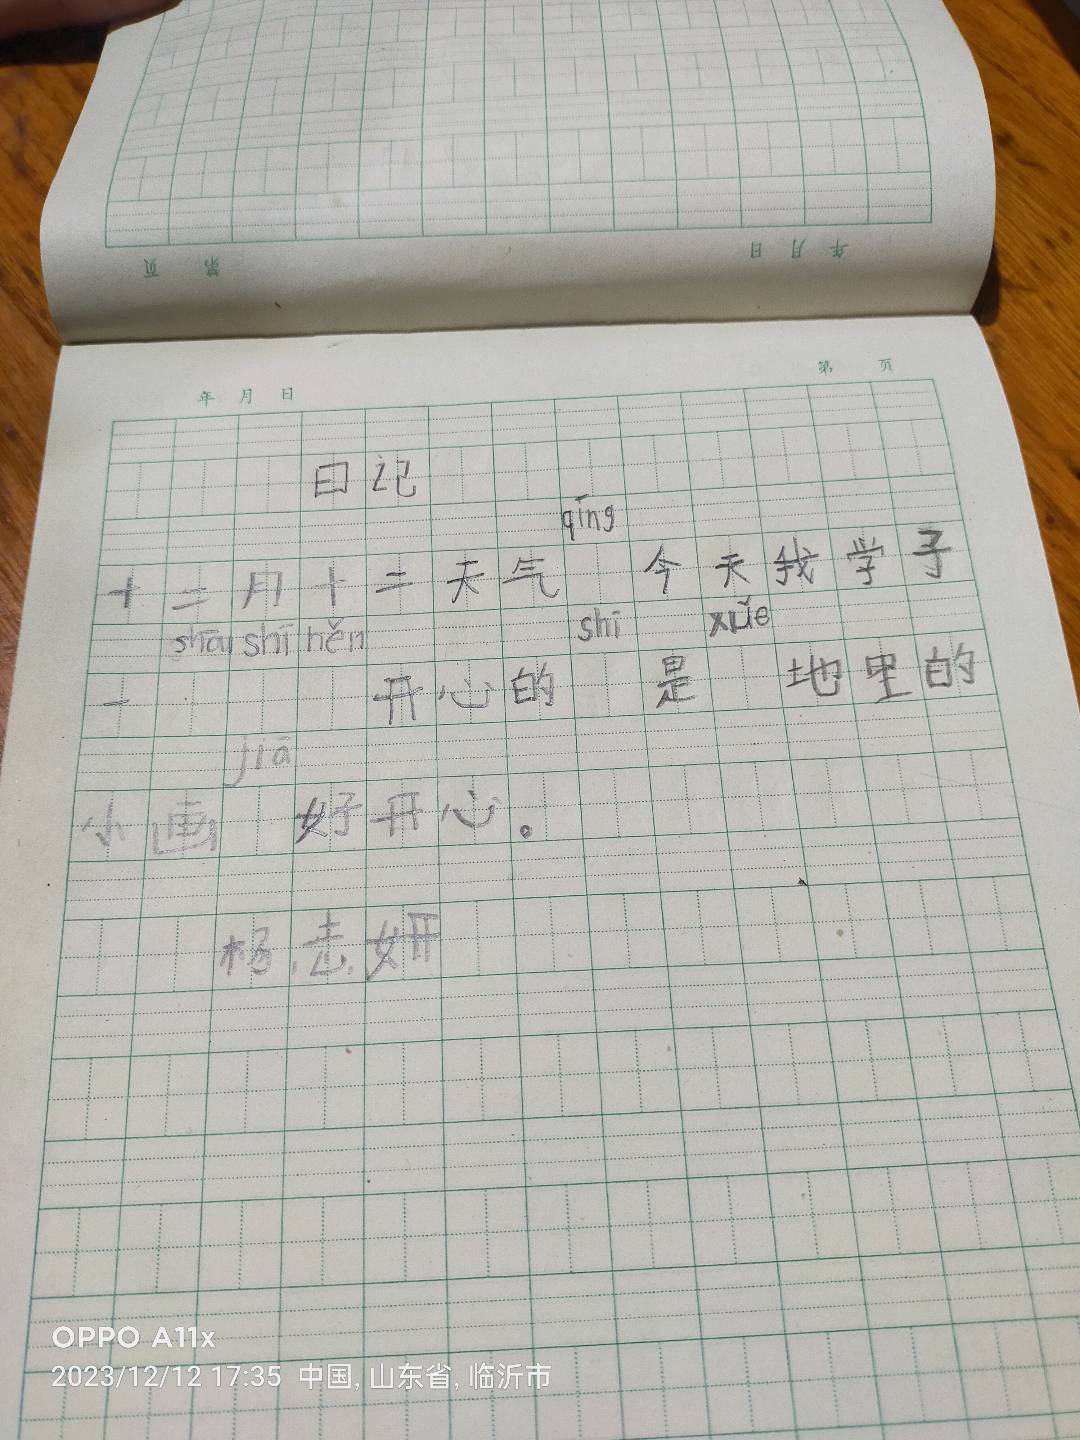 页 第 日 月 年
年 月 日 第 页
日记
qīng
十二月十二天气 今天我学子
shōu shī hěn shī xuě
一 开心的 是 地里的
jiā
小画 好开心。
杨志妍
OPPO A11x
2023/12/12 17:35 中国, 山东省, 临沂市